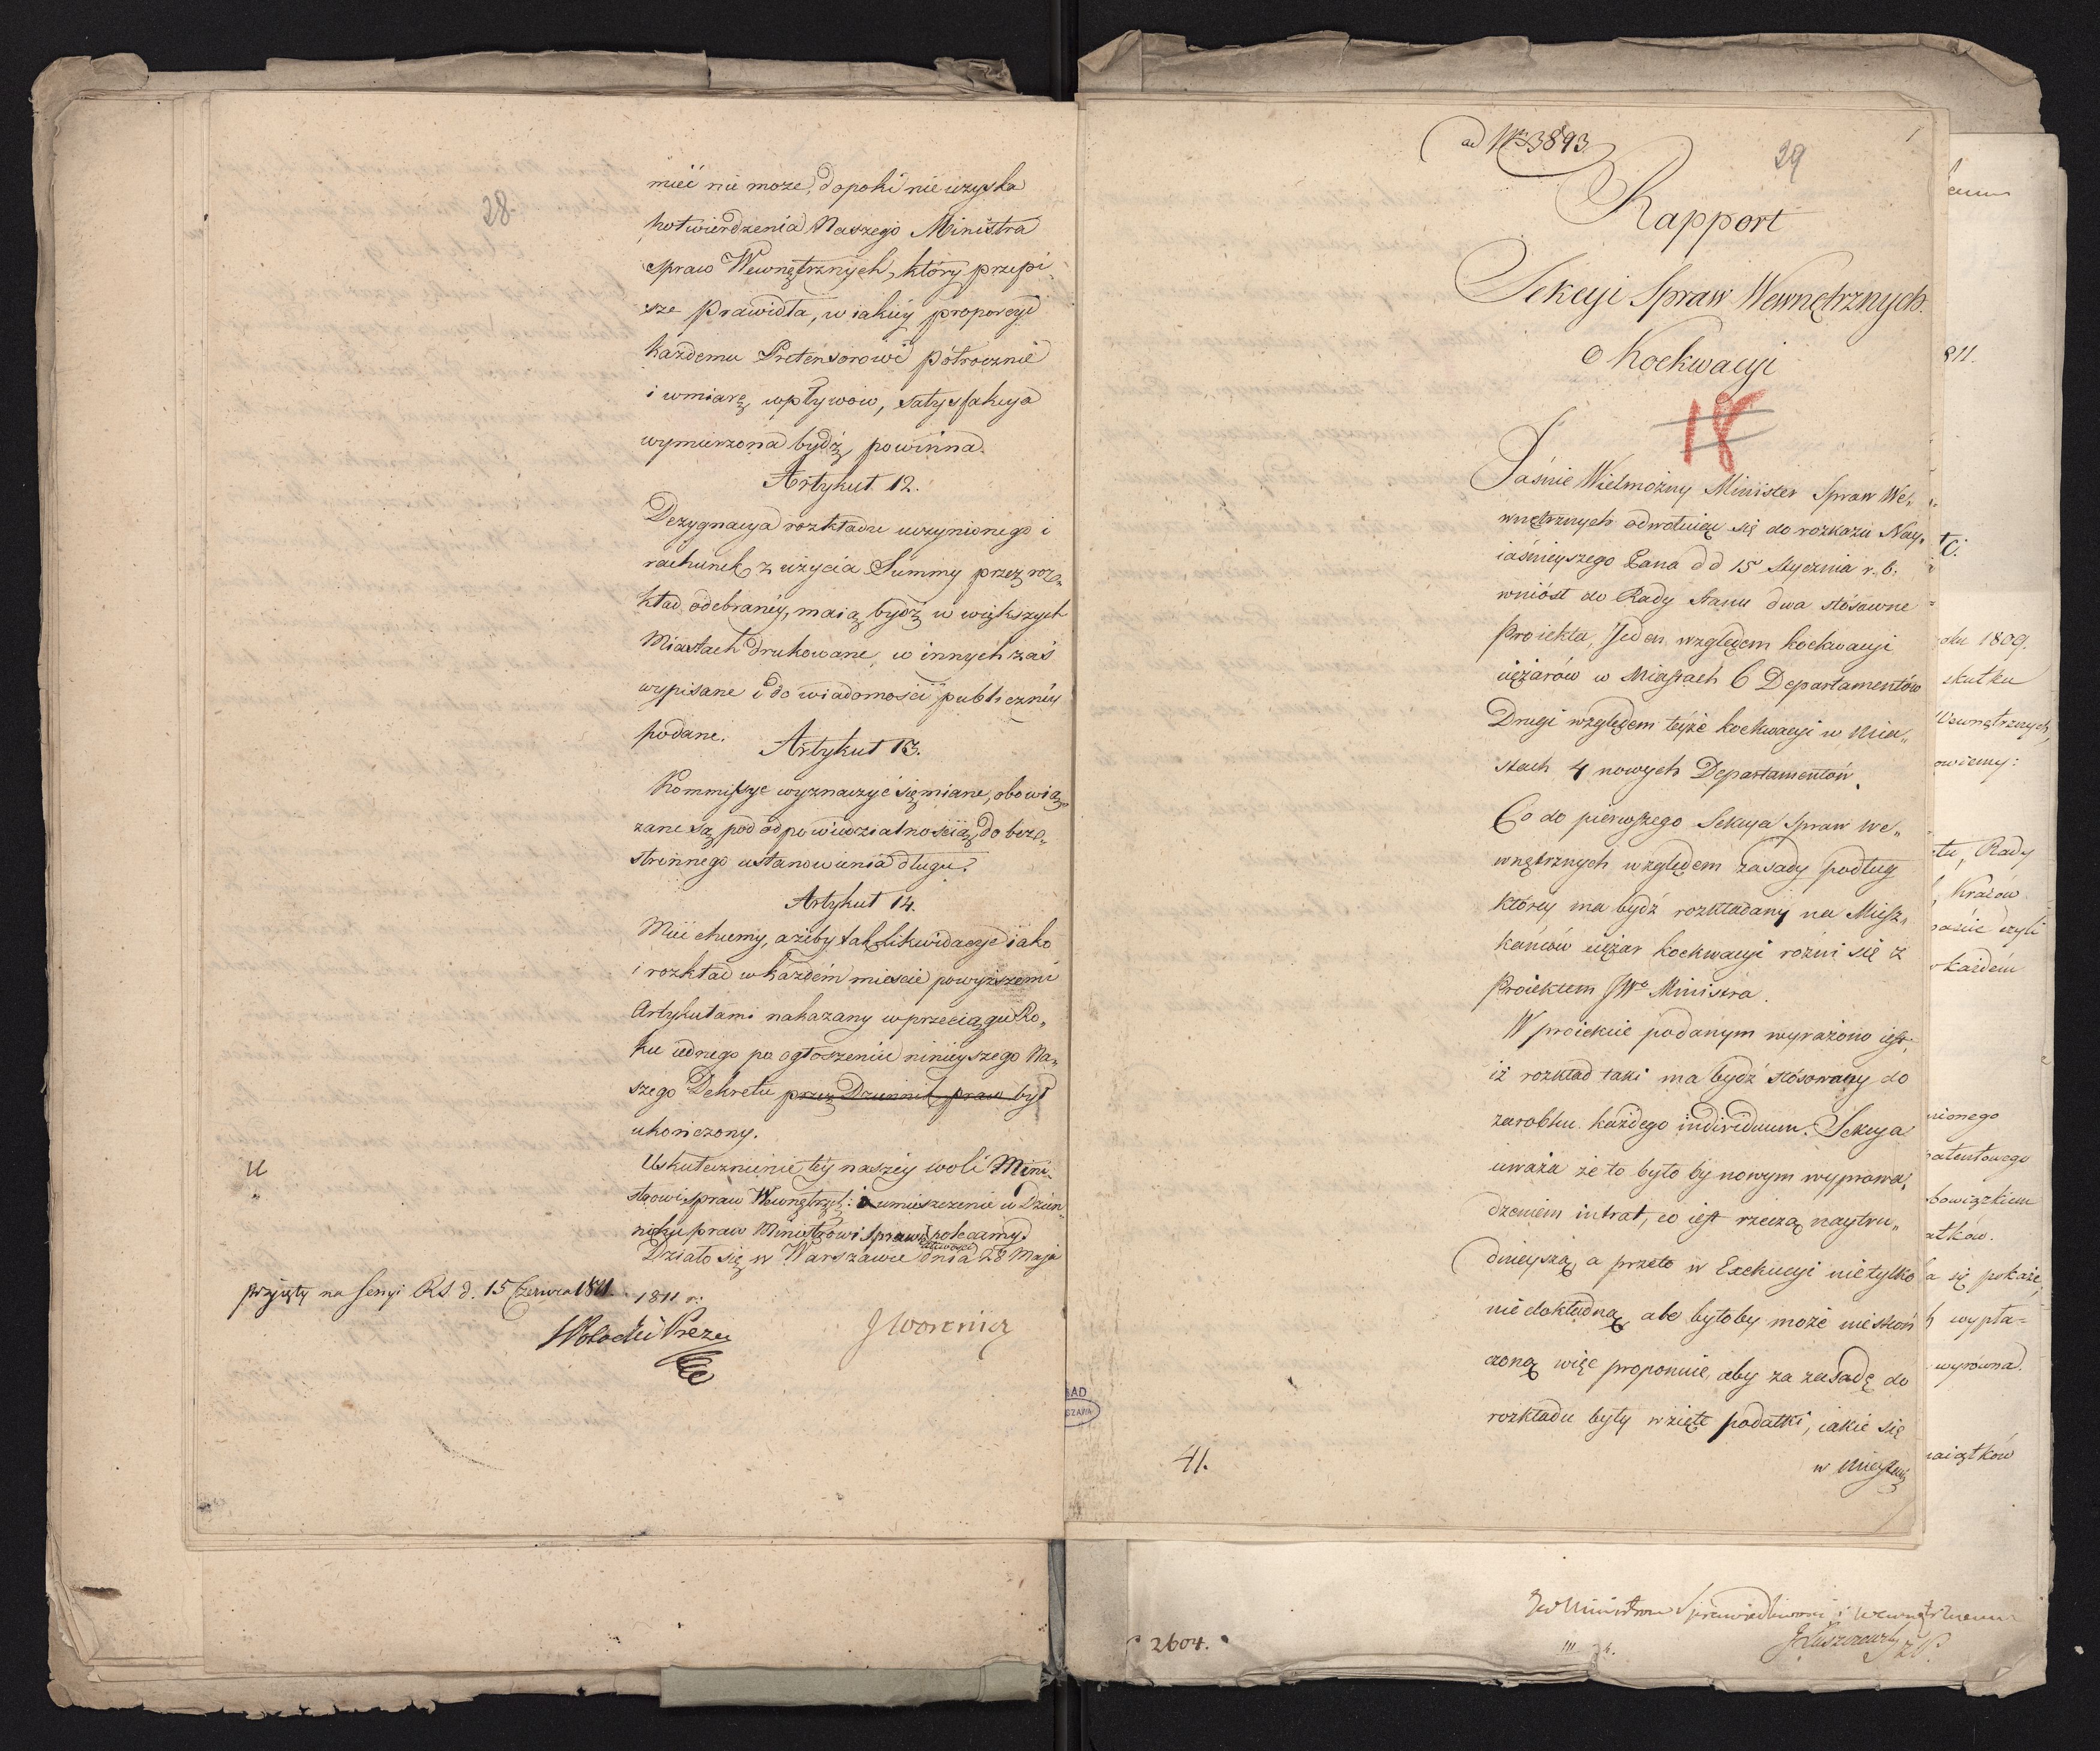 28.
mieć nie może, dopoki nie uzyska
potwierdzenia Naszego Ministra
spraw Wewnętrznych, który przepi„
sze prawidła, w iakiey proporcyi
każdemu Pretensorowi półrocznie
i wmiarę wpływow, satysfakcya
wymierzona bydź powinna.
Artykuł 12.
Dezygnacya rozkładu uczynionego i
rachunek z użycia Summy przez roz„
kład odebraney, maią bydź w większych
Miastach drukowane, w innych zaś
wypisane i do wiadomości publiczney
podane.
Artykuł 13.
Kommissye wyznaczyć się miane, obowią„
zane są pod odpowiedzialnością, do bezs„
stronnego ustanowienia długu.
Artykuł 14.
Mieć chcemy, ażeby tak Likwidacye iako
i rozkład w każdem mieście powyższemi
Artykułami nakazany w przeciągu Ro„
ku iednego po ogłoszeniu ninieyszego Na„
szego Dekretu przez Dziennik praw był
ukończony.
Uskutecznienie tey naszey woli Mini„
strowi spraw Wewnętrzch: umieszczenie w Dzien„
niku praw Ministrowi Sprawiedliwości polecamy.
Działo się w Warszawie dnia 28 Maja
1811 r:
przyjęty na Sessyi RS. d. 15 Czerwca 1811.
Prezes
ad Nrum 3893.
1
29
Rapport
Sekcyi Spraw Wewnętrznych.
O Koekwacyi
18
Jaśnie Wielmożny Minister Spraw We„
wnętrznych odwołuiąc się do rozkazu Nay„
iaśnieyszego Pana dd 15 Stycznia r. b.
wniósł do Rady Stanu dwa stósowne
Proiekta, Jeden względem koekwacyi
ciężarów w Miastach 6 Departamentów
Drugi względem teyże koekwacyi w Mia„
stach 4 nowych Departamentów.
Co do pierwszego Sekcya Spraw We„
wnętrznych względem zasady podług
którey ma bydź rozkładany na Miesz„
kańców ciężar koekwacyi rożni się z
Proiektem JWo Ministra.
W proiekcie podanym wyrażono iest,
iż rozkład taki ma bydź stósowany do
zarobku każdego individuum. Sekcya
uważa że to było by nowym wyprowa„
dzeniem intrat, co iest rzeczą naytru„
dnieyszą, a przeto w Exekucyi nie tylko
niedokładną, ale byłoby może nieskoń
czoną więc proponuie, aby za zasadę do
rozkładu były wzięte podatki, iakie się
w mieyscu
41.
811.
oku 1809.
skutku
Wewnętrznych,
owiemy:
tu, Rady
Kraiów
czyli
każdem
nionego
patentowego
bowiązkiem
atków.
a się pokaże,
wypła„
wyrówna.
maiątków
2604.